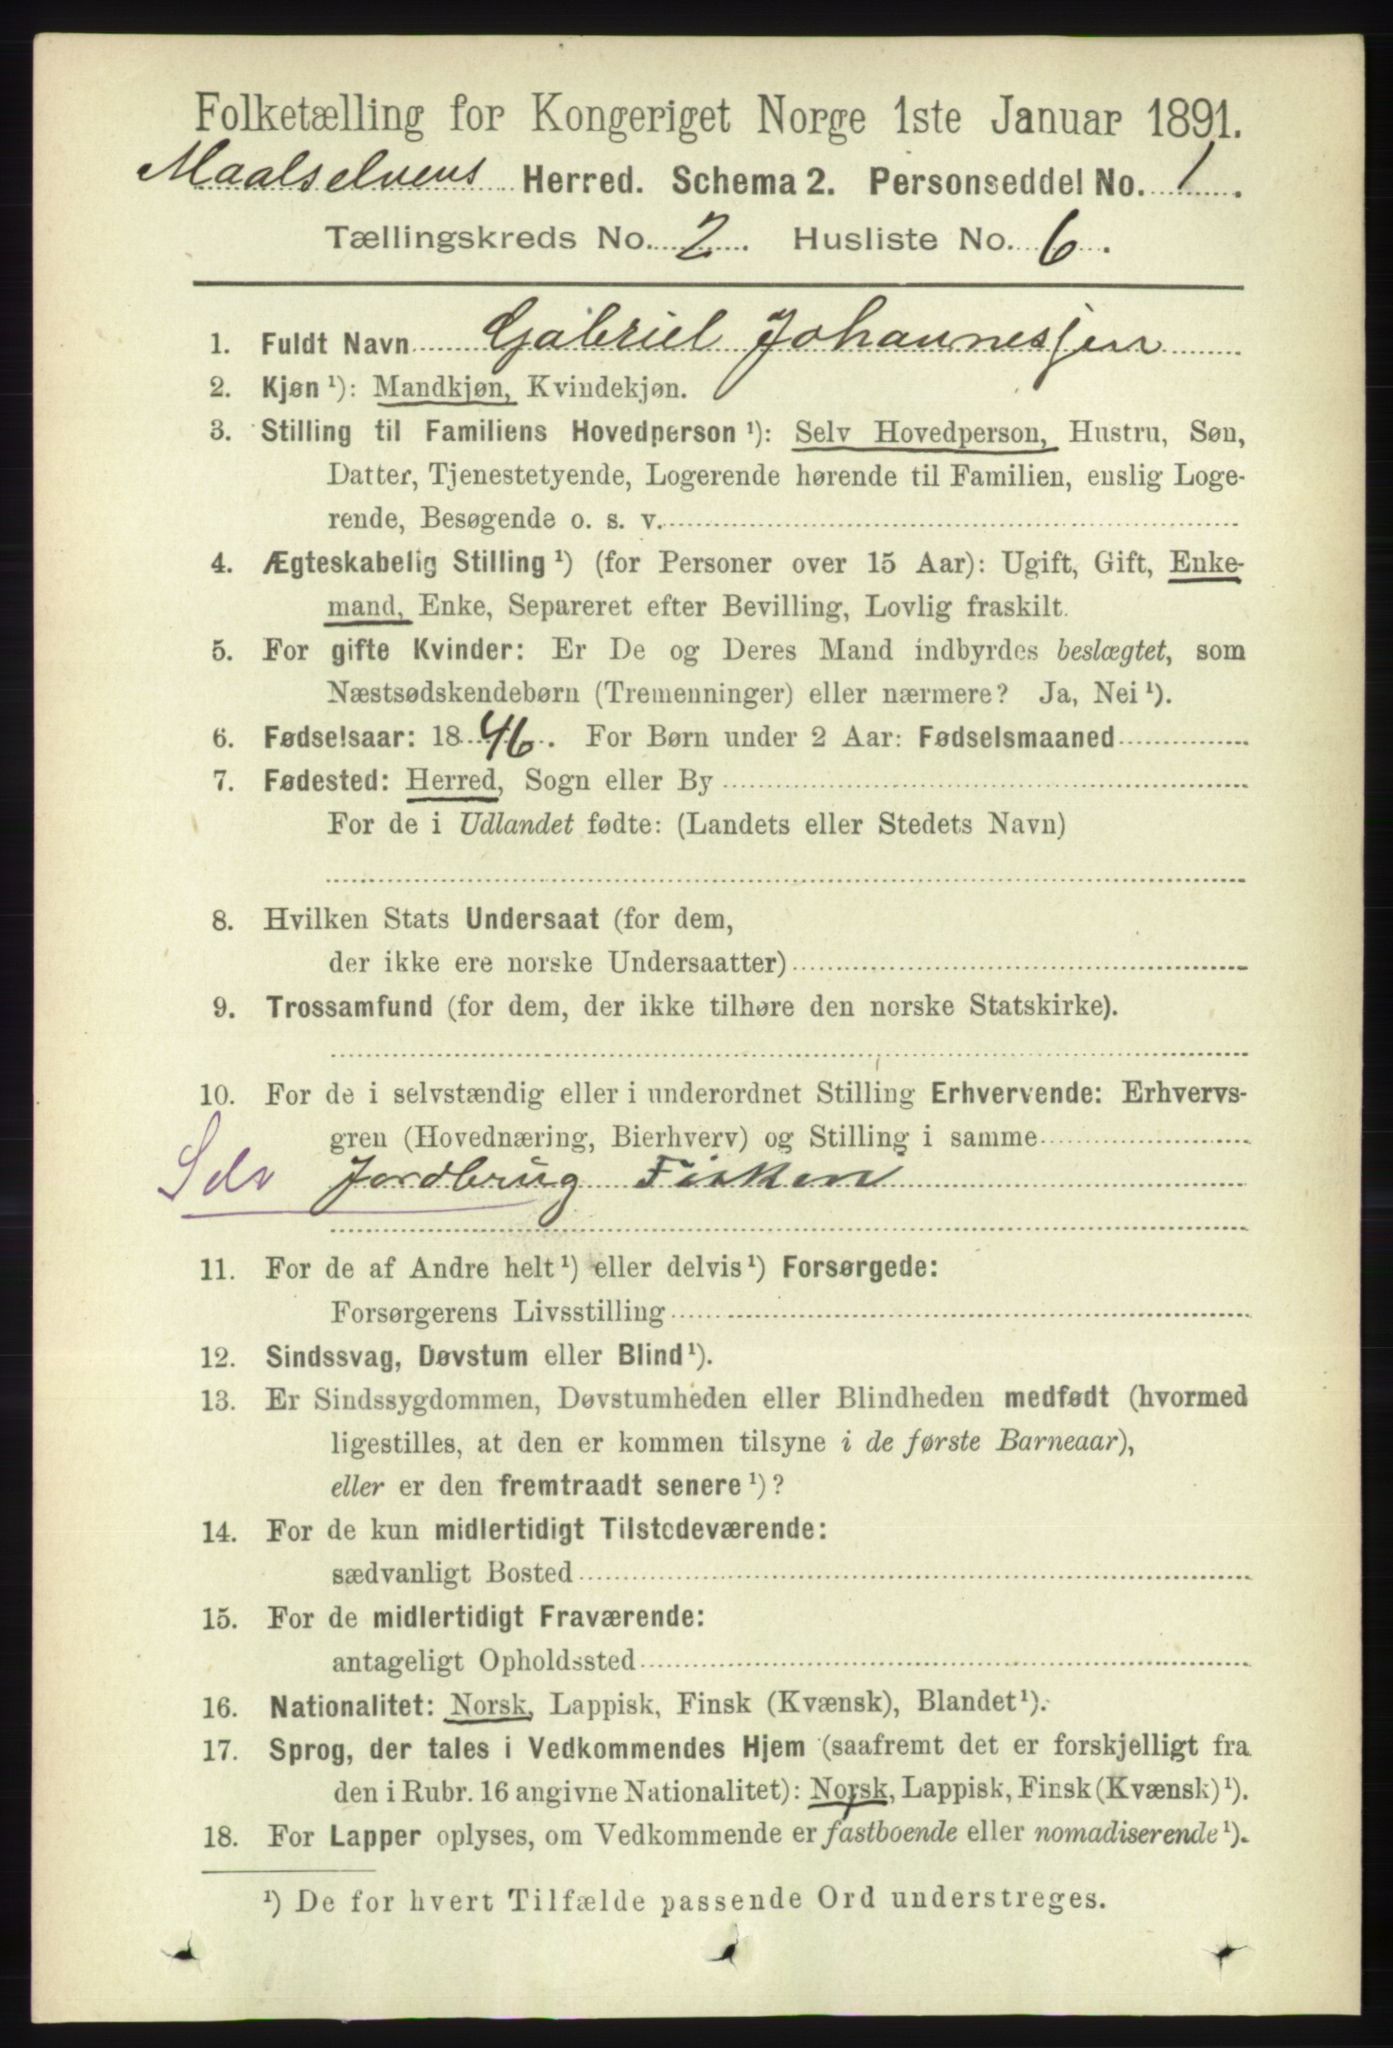 Folketælling for Kongeriget Norge 1ste Januar 1891.
Maalselvens Herred. Schema 2. Personseddel No. 1.
Tællingskreds No. 2. Husliste No. 6.
1. Fuldt Navn Gabriel Johannesjen
2. Kjøn ¹): Mandkjøn, Kvindekjøn.
3. Stilling til Familiens Hovedperson ¹): Selv Hovedperson, Hustru, Søn,
Datter, Tjenestetyende, Logerende hørende til Familien, enslig Loge-
rende, Besøgende o. s. v.
4. Ægteskabelig Stilling ¹) (for Personer over 15 Aar): Ugift, Gift, Enke-
mand, Enke, Separeret efter Bevilling, Lovlig fraskilt.
5. For gifte Kvinder: Er De og Deres Mand indbyrdes beslægtet, som
Næstsødskendebørn (Tremenninger) eller nærmere? Ja, Nei ¹).
6. Fødselsaar: 1846. For Børn under 2 Aar: Fødselsmaaned
7. Fødested: Herred, Sogn eller By
For de i Udlandet fødte: (Landets eller Stedets Navn)
8. Hvilken Stats Undersaat (for dem,
der ikke ere norske Undersaatter)
9. Trossamfund (for dem, der ikke tilhøre den norske Statskirke).
10. For de i selvstændig eller i underordnet Stilling Erhvervende: Erhvervs-
gren (Hovednæring, Bierhverv) og Stilling i samme
Selv Jordbrug Fisken
11. For de af Andre helt ¹) eller delvis ¹) Forsørgede:
Forsørgerens Livsstilling
12. Sindssvag, Døvstum eller Blind ¹).
13. Er Sindssygdommen, Døvstumheden eller Blindheden medfødt (hvormed
ligestilles, at den er kommen tilsyne i de første Barneaar),
eller er den fremtraadt senere ¹)?
14. For de kun midlertidigt Tilstedeværende:
sædvanligt Bosted
15. For de midlertidigt Fraværende:
antageligt Opholdssted
16. Nationalitet: Norsk, Lappisk, Finsk (Kvænsk), Blandet ¹).
17. Sprog, der tales i Vedkommendes Hjem (saafremt det er forskjelligt fra
den i Rubr. 16 angivne Nationalitet): Norsk, Lappisk, Finsk (Kvænsk) ¹).
18. For Lapper oplyses, om Vedkommende er fastboende eller nomadiserende ¹).
¹) De for hvert Tilfælde passende Ord understreges.